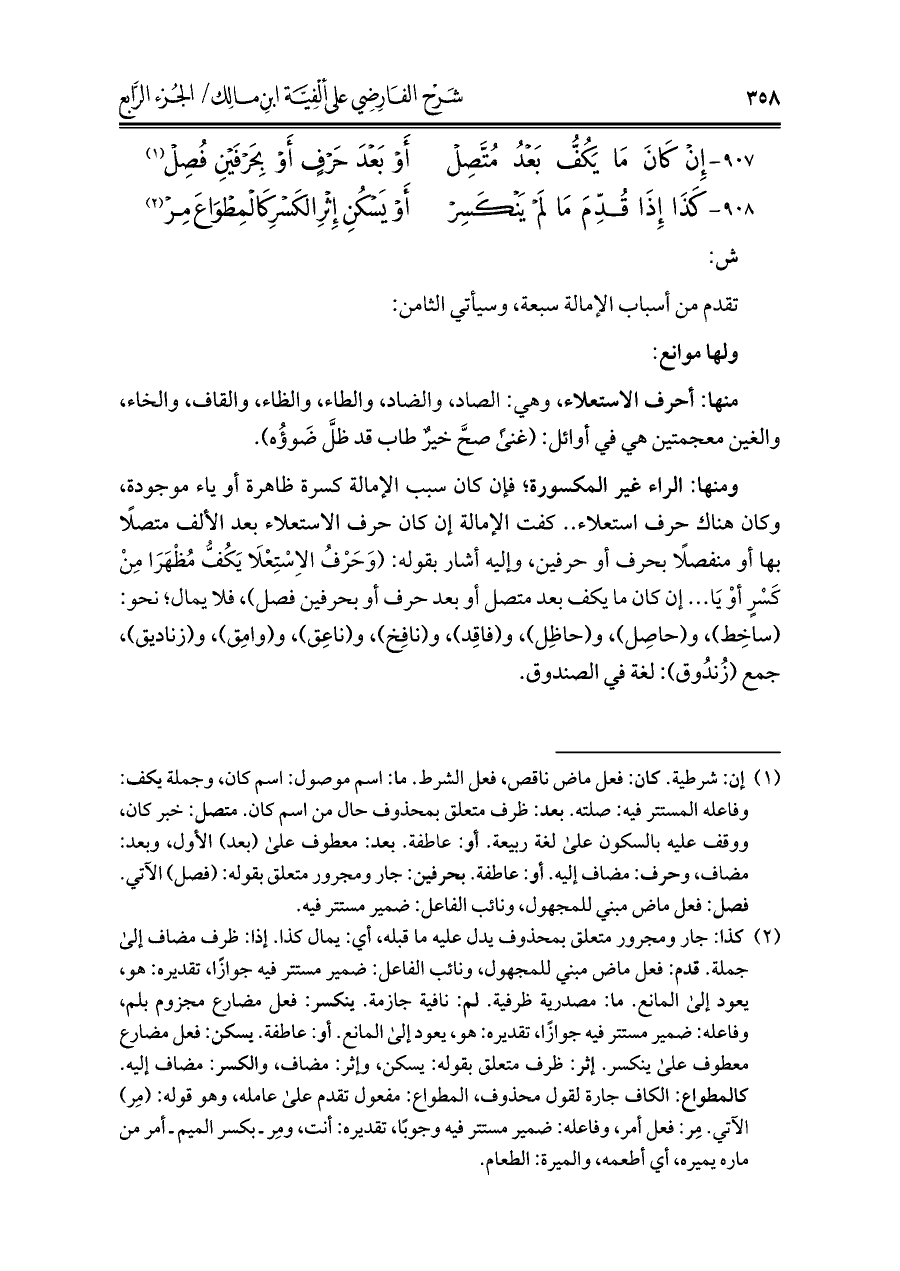 ٣٥٨ شَرْح الفَارِضِي عَلَى أَلْفِيَّة ابنِ مَالِك/ الجُزء الرَّابع
٩٠٧- إِنْ كَانَ مَا يَكُفُّ بَعْدُ مُتَّصِلْ أَوْ بَعْدَ حَرْفٍ أَوْ بِحَرْفَيْنِ فُصِلْ(١)
٩٠٨- كَذَا إِذَا قُدِّمَ مَا لَمْ يَنْكَسِرْ أَوْ يَسْكُنِ إِثْرَ الكَسْرِ كَالْمِطْوَاعَ مِرْ(٢)
ش:
تقدم من أسباب الإمالة سبعة، وسيأتي الثامن:
ولها موانع:
منها: أحرف الاستعلاء، وهي: الصاد، والضاد، والطاء، والظاء، والقاف، والخاء،
والغين معجمتين هي في أوائل: (غنىً صحَّ خيرٌ طاب قد ظلَّ ضَوؤُه).
ومنها: الراء غير المكسورة؛ فإن كان سبب الإمالة كسرة ظاهرة أو ياء موجودة،
وكان هناك حرف استعلاء.. كفت الإمالة إن كان حرف الاستعلاء بعد الألف متصلًا
بها أو منفصلًا بحرف أو حرفين، وإليه أشار بقوله: (وَحَرْفُ الاِسْتِعْلَا يَكُفُّ مُظْهَرَا مِنْ
كَسْرٍ أوْ يَا... إن كان ما يكف بعد متصل أو بعد حرف أو بحرفين فصل)، فلا يمال؛ نحو:
(ساخِط)، و(حاصِل)، و(حاظِل)، و(فاقِد)، و(نافِخ)، و(ناعِق)، و(وامِق)، و(زناديق)،
جمع (زُندُوق): لغة في الصندوق.
(١) إن: شرطية. كان: فعل ماض ناقص، فعل الشرط. ما: اسم موصول: اسم كان، وجملة يكف:
وفاعله المستتر فيه: صلته. بعد: ظرف متعلق بمحذوف حال من اسم كان. متصل: خبر كان،
ووقف عليه بالسكون علىٰ لغة ربيعة. أو: عاطفة. بعد: معطوف علىٰ (بعد) الأول، وبعد:
مضاف، وحرف: مضاف إليه. أو: عاطفة. بحرفين: جار ومجرور متعلق بقوله: (فصل) الآتي.
فصل: فعل ماض مبني للمجهول، ونائب الفاعل: ضمير مستتر فيه.
(٢) كذا: جار ومجرور متعلق بمحذوف يدل عليه ما قبله، أي: يمال كذا. إذا: ظرف مضاف إلىٰ
جملة. قدم: فعل ماض مبني للمجهول، ونائب الفاعل: ضمير مستتر فيه جوازًا، تقديره: هو،
يعود إلىٰ المانع. ما: مصدرية ظرفية. لم: نافية جازمة. ينكسر: فعل مضارع مجزوم بلم،
وفاعله: ضمير مستتر فيه جوازًا، تقديره: هو، يعود إلىٰ المانع. أو: عاطفة. يسكن: فعل مضارع
معطوف علىٰ ينكسر. إثر: ظرف متعلق بقوله: يسكن، وإثر: مضاف، والكسر: مضاف إليه.
كالمطواع: الكاف جارة لقول محذوف، المطواع: مفعول تقدم علىٰ عامله، وهو قوله: (مِر)
الآتي. مِر: فعل أمر، وفاعله: ضمير مستتر فيه وجوبًا، تقديره: أنت، ومِر ـ بكسر الميم ـ أمر من
ماره يميره، أي أطعمه، والميرة: الطعام.